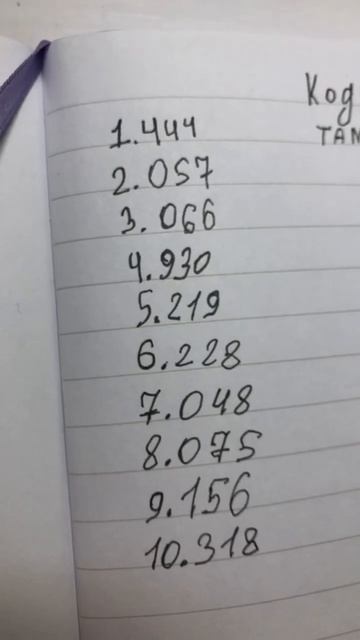 Код
1.444
2.057
3.066
4.930
5.219
6.228
7.048
8.075
9.156
10.318